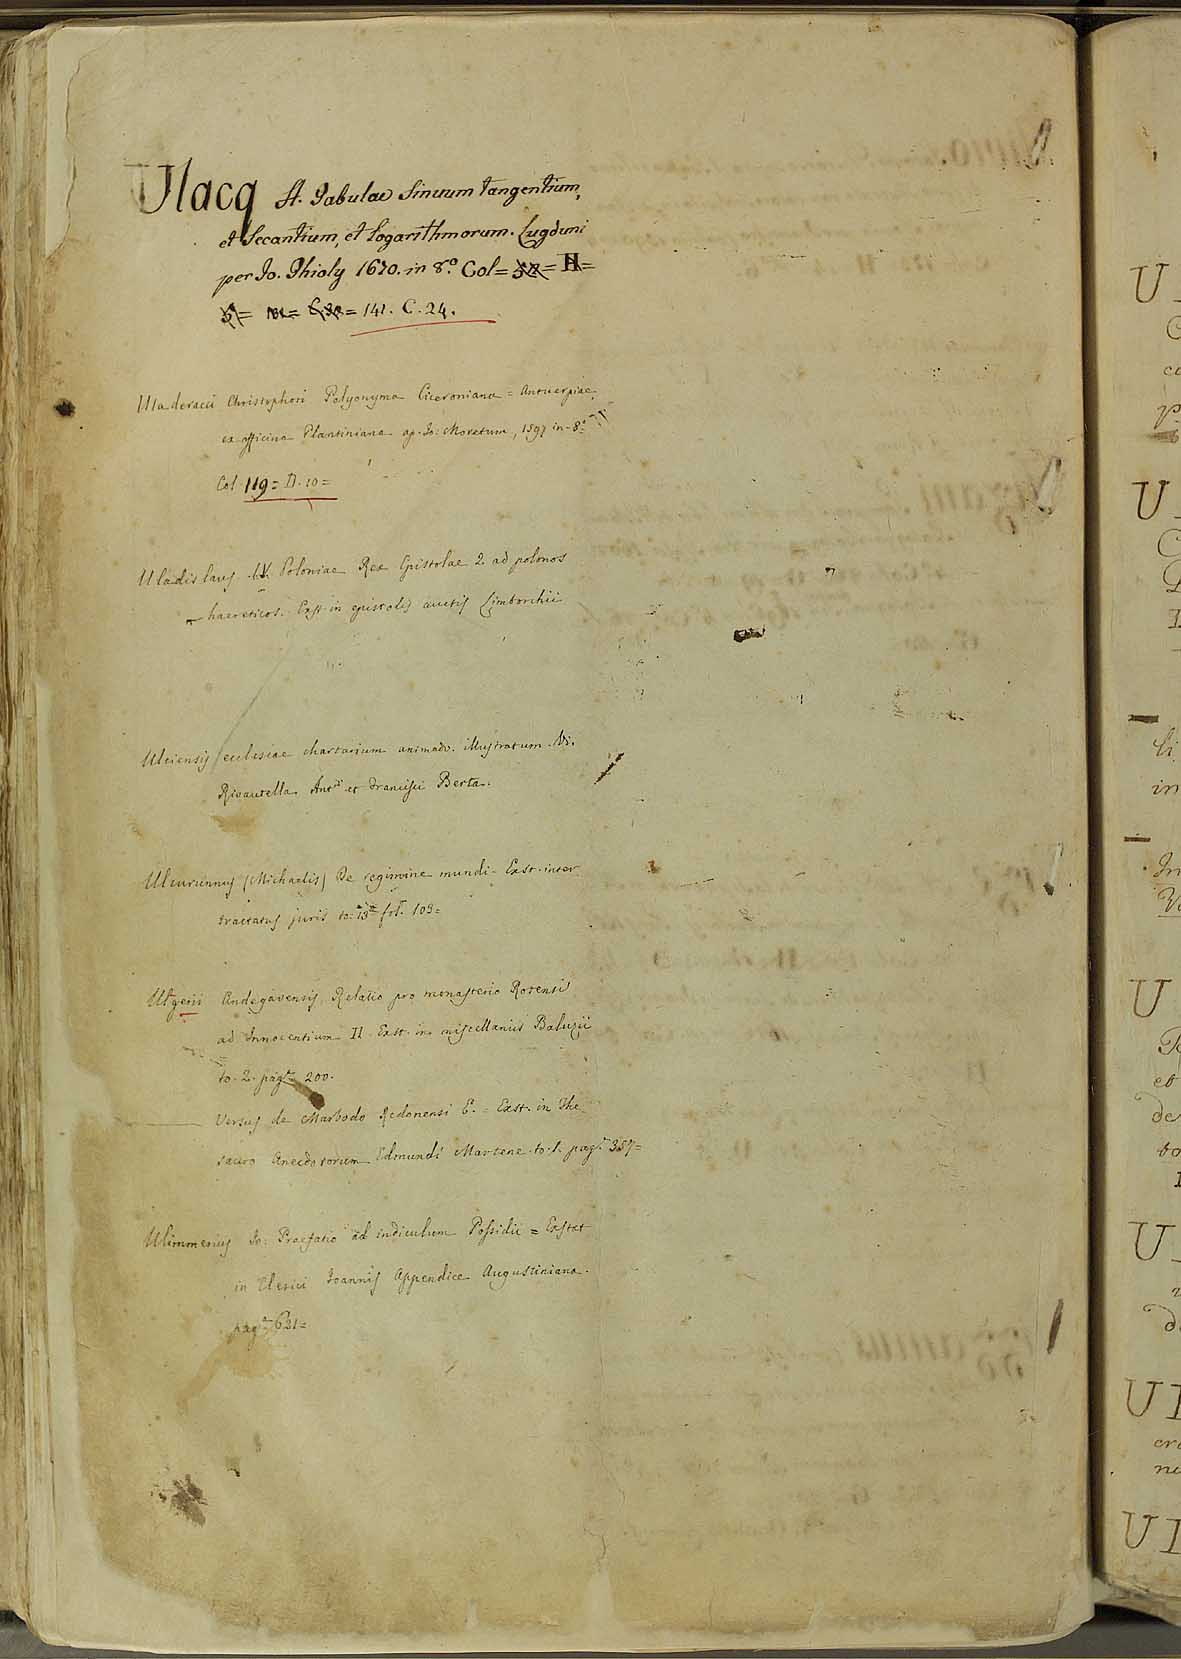 Ulacq A. Tabulae Sinuum tangentium,
et Secantium, et Logarithmorum. Lugduni
per Jo. Thioly 1670. in 8.º Col= = H=
= = = 141. C. 24.
Uladeracii Christophori Polyonyma Ciceroniana = Antuerpiae,
ex officina Plantiniana ap. Jo: Moretum, 1597 in-8.º
Col. 119= D. 10=
Uladislaus IV. Poloniae Rex Epistolae 2 ad polonos
haereticos. Exst. in epistolis auctis Limborchii
Ulciensis ecclesiae chartarium animadv. illustratum. Vi.
Rivautella Ant.ii et Francisci Berta.
Ulcurunnus (Michaelis) De regimine mundi. Exst. inter
tractatus juris to: 13.º fol. 103=
Ulgerii Andegavensis, Relatio pro monasterio Rotensi
ad Innocentium II. Exst. in miscellaniis Baluzii
to. 2. pag.ª 200.
Versus de Marbodo Redonensi E. = Exst. in The
sauro Anecdotorum Edmundi Martene. to. 1. pag.ª 357=
Ulimmerius Jo: Praefatio ad indiculum Possidii = Exstat
in Clerici Joannis Appendice Augustiniana.
pag.ª 621=